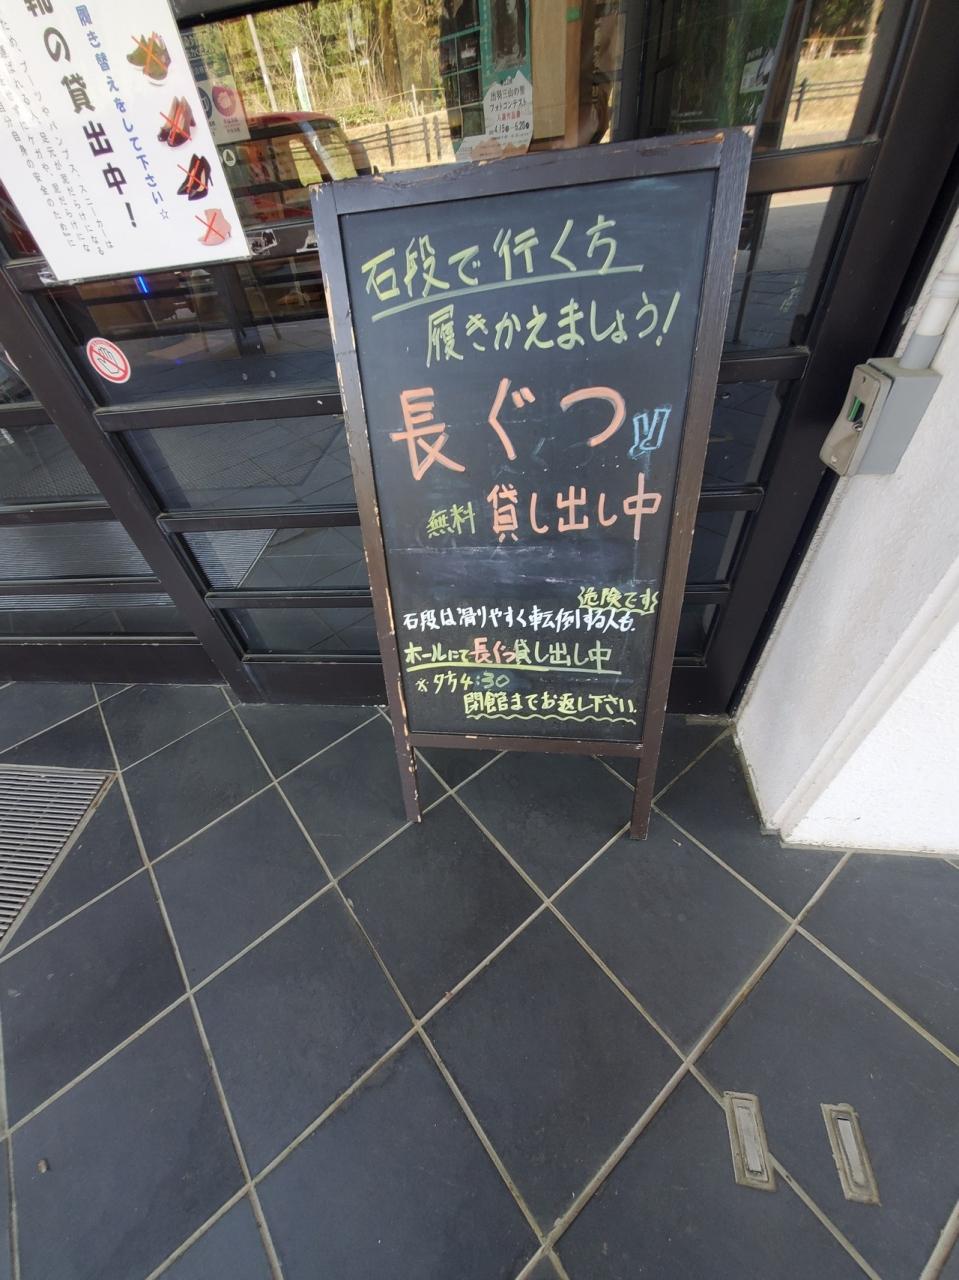 石段で行く方
履きかえましょう!
長ぐつ
無料 貸し出し中
危険です
石段は滑りやすく転倒する人も.
ホールにて長ぐつ貸し出し中
※夕方4:30
閉館までお返し下さい.
靴の貸出中!
履き替えをして下さい☆
出羽三山の
フォトコンテスト
入選作品展